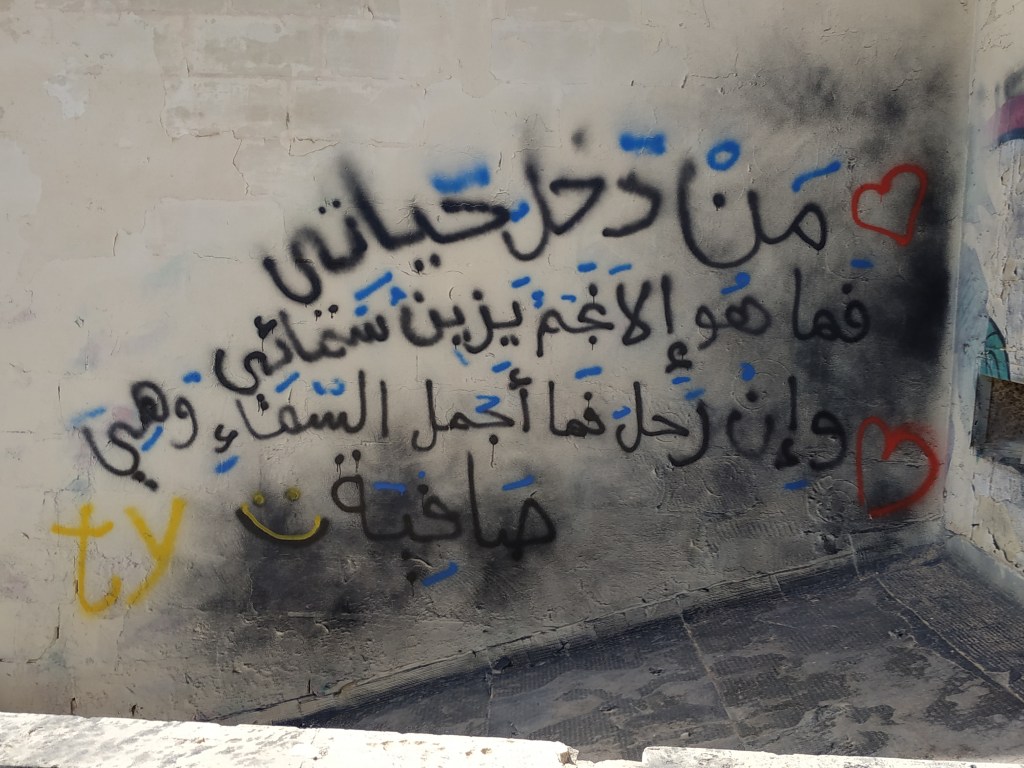 مَنْ دَخلَ حَياتي
فَما هُو إلا نَجَمُ يَزينُ سَمَائي
وإِن رَحلَ فَما أَجَمل السَّمَاءِ وَهِيَ
صَافِيَة
ty